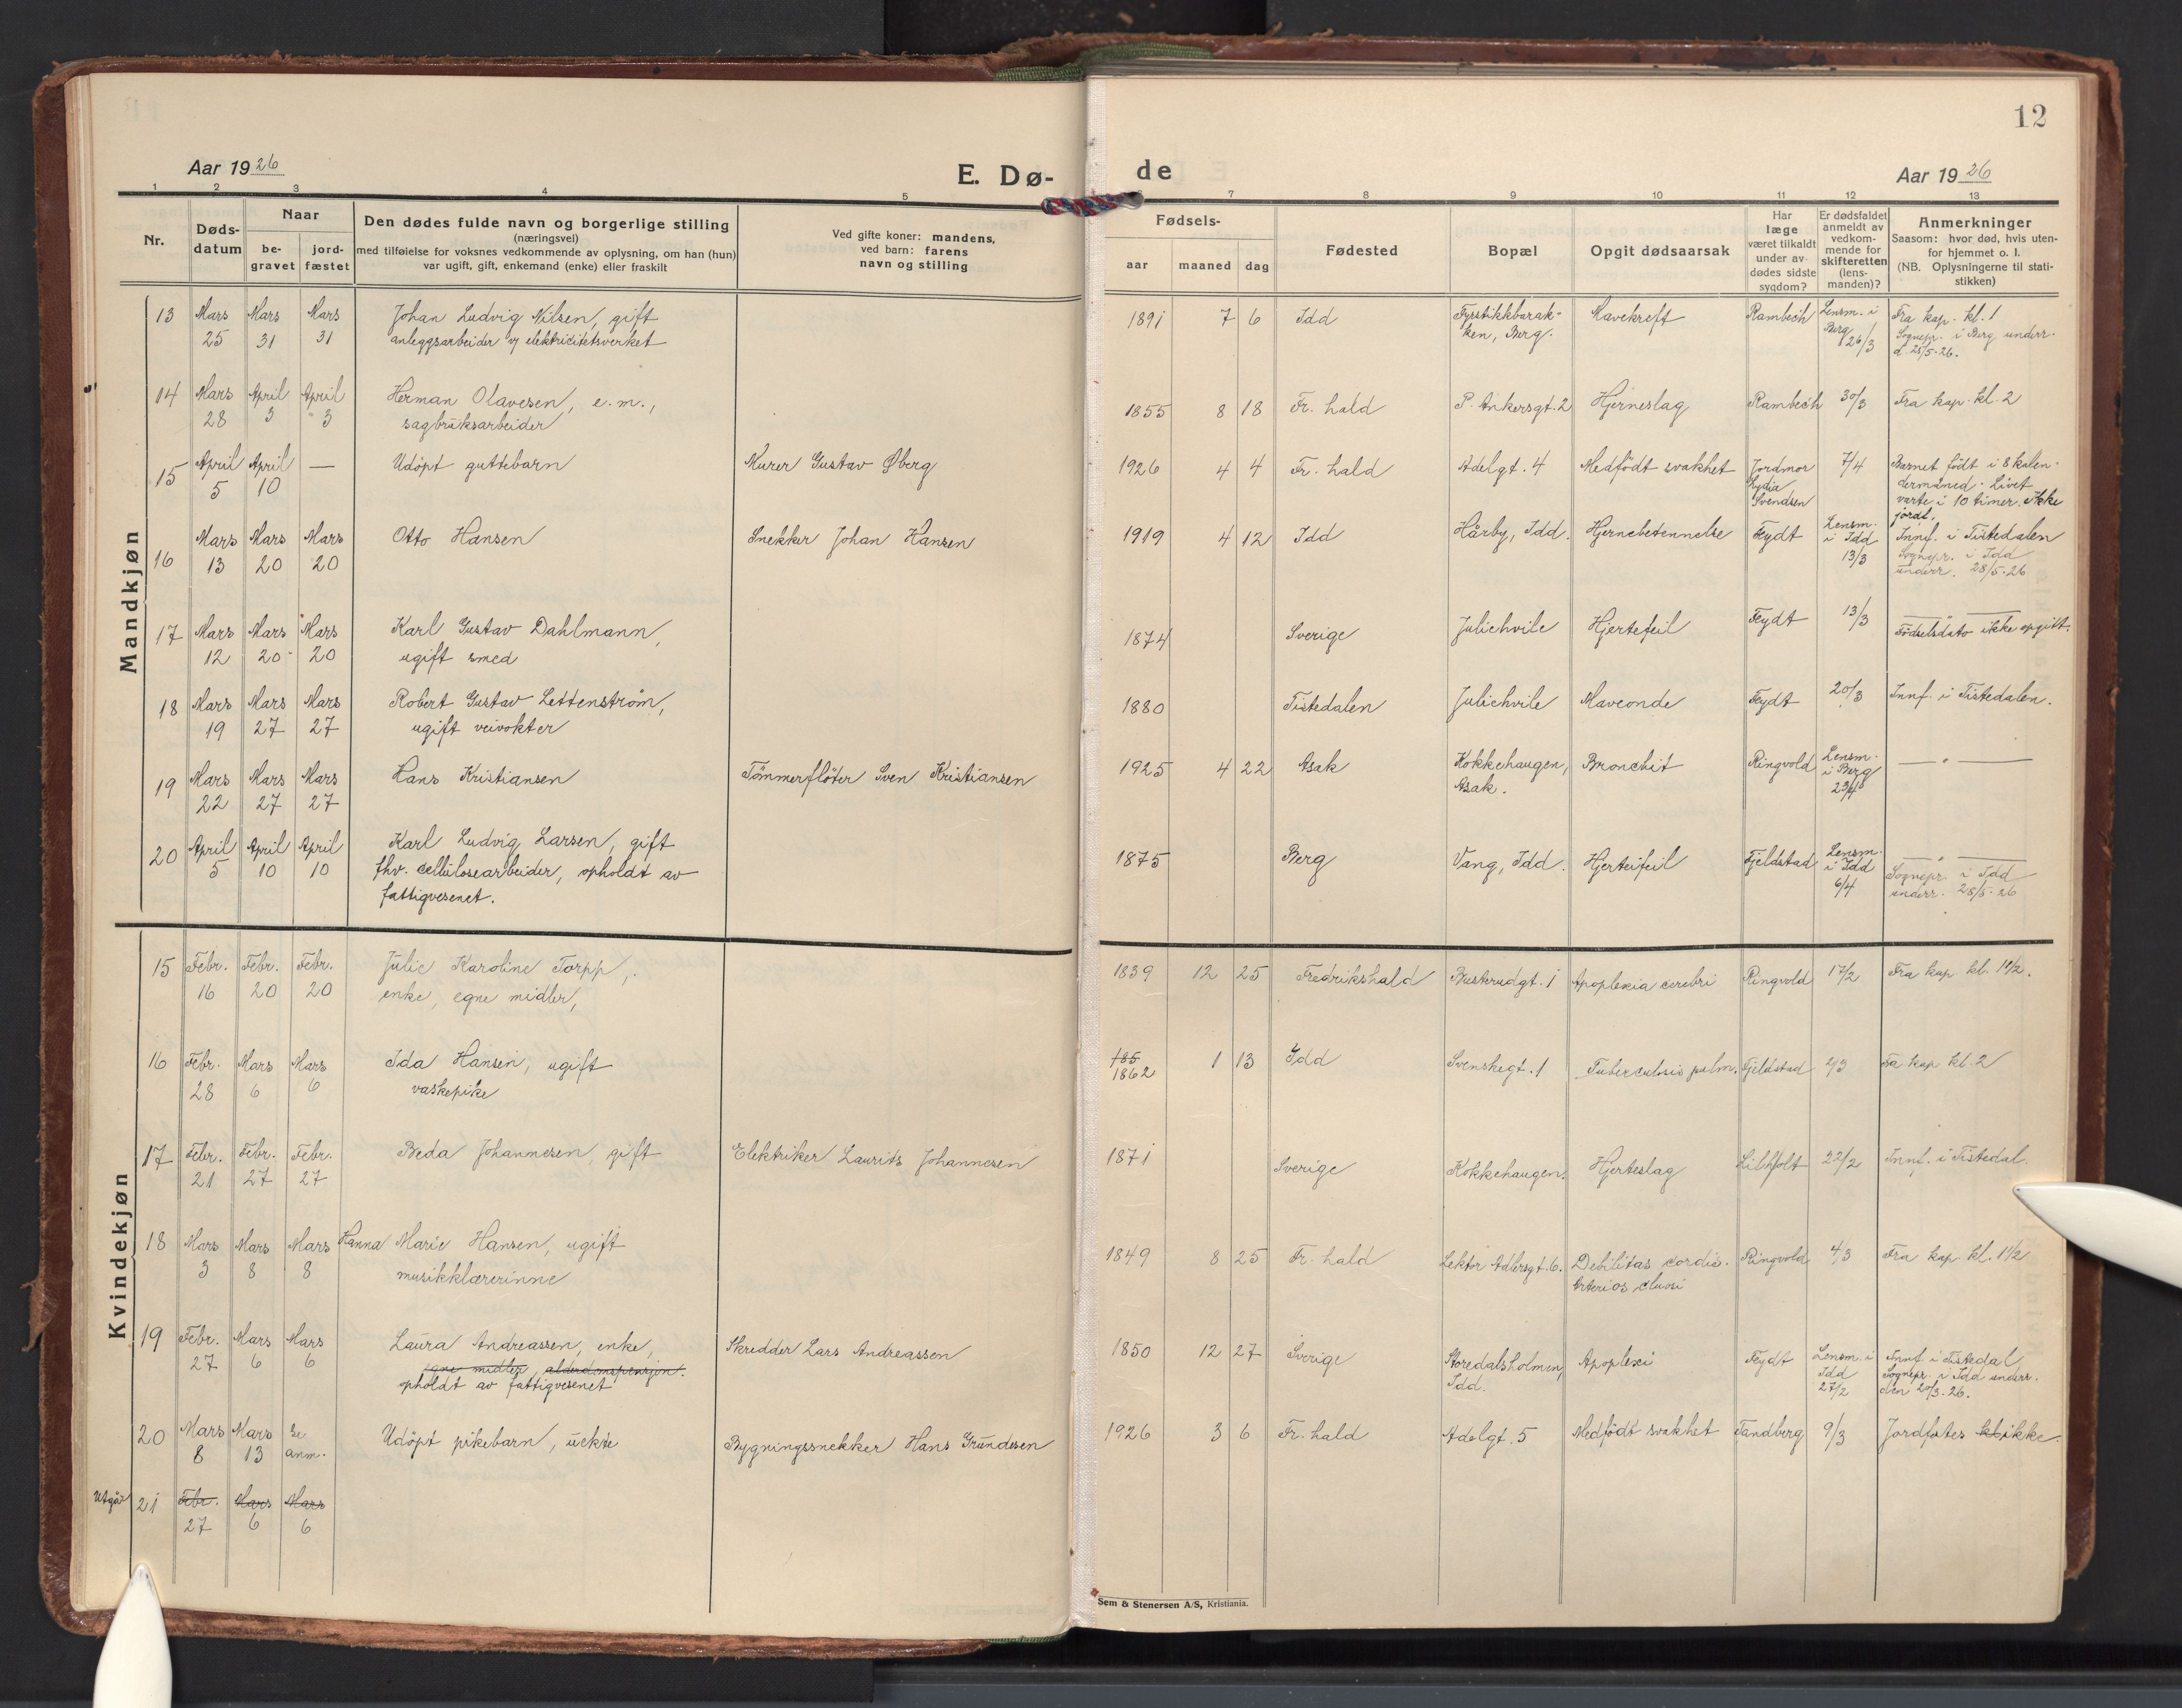 12
Aar 1926
E. Dø-
de
Aar 1926
1 2 3 4 5 7 8 9 10 11 12 13
Nr.
Døds-
datum
Naar
be-
gravet
jord-
fæstet
Den dødes fulde navn og borgerlige stilling
(næringsvei)
med tilføielse for voksnes vedkommende av oplysning, om han (hun)
var ugift, gift, enkemand (enke) eller fraskilt
Ved gifte koner: mandens,
ved barn: farens
navn og stilling
Fødsels-
aar maaned dag
Fødested
Bopæl
Opgit dødsaarsak
Har
læge
været tilkaldt
under av-
dødes sidste
sygdom?
Er dødsfaldet
anmeldt av
vedkom-
mende for
skifteretten
(lens-
manden)?
Anmerkninger
Saasom: hvor død, hvis uten-
for hjemmet o. l.
(NB. Oplysningerne til stati-
stikken)
Mandkjøn
13 Mars Mars Mars Johan Ludvig Nilsen, gift 1891 7 6 Idd Fyrstikkbarak- Mavekreft Rambech Lensm. i Fra kap. kl. 1
25 31 31 anleggsarbeider v/ elektricitetsverket ken, Berg. Berg 26/3 Sognepr. i Berg underr.
d. 28/5-26.
14 Mars April April Herman Olavesen, e.m., 1855 8 18 Fr. hald P. Ankersgt. 2 Hjerneslag Rambech 30/3 Fra kap. kl. 2
28 3 3 sagbruksarbeider
15 April April — Udöpt guttebarn Murer Gustav Øberg 1926 4 4 Fr. hald Adelgt. 4 Medfödt svakhet Jordmor 7/4 Barnet födt i 8 kalen-
5 10 Lydia dermåned. Livet
Svendsen varte i 10 timer. Ikke
jordf.
16 Mars Mars Mars Otto Hansen Snekker Johan Hansen 1919 4 12 Idd Hårby, Idd. Hjernebetennelse Feydt Lensm. Innf. i Tistedalen
13 20 20 i Idd Sognepr. i Idd
13/3 underr. 28/5-26
17 Mars Mars Mars Karl Gustav Dahlmann, 1874 Sverige Juliehvile Hjertefeil Feydt 13/3 — " —
12 20 20 ugift smed Fødselsdato ikke opgitt.
18 Mars Mars Mars Robert Gustav Lettenström, 1880 Tistedalen Juliehvile Maveonde Feydt 20/3 Innf. i Tistedalen.
19 27 27 ugift veivokter
19 Mars Mars Mars Hans Kristiansen Tömmerflöter Sven Kristiansen 1925 4 22 Asak Kokkehaugen, Bronchit Ringvold Lensm. — " —
22 27 27 Asak. i Berg
20 April April April Karl Ludvig Larsen, gift 1875 Berg Vang, Idd. Hjerteifeil Fjeldstad Lensm. — " —
5 10 10 fhv. cellulosearbeider, opholdt av i Idd Sognepr. i Idd
fattigvesenet. 6/4 underr. 28/5-26
Kvindekjøn
15 Febr. Febr. Febr. Julie Karoline Torpp, 1839 12 25 Fredrikshald Busterudgt. 1 Apoplexia cerebri Ringvold 17/2 Fra kap kl. 1 1/2.
16 20 20 enke, egne midler,
16 Febr. Mars Mars Ida Hansen, ugift 185 1 13 Idd Svenskegt. 1 Tuberculosis pulm. Fjeldstad 2/3 Fra kap kl. 2
28 6 6 vaskepike 1862
17 Febr. Febr. Febr. Beda Johannesen, gift Elektriker Laurits Johannesen 1871 Sverige Kokkehaugen. Hjerteslag Lilholt 22/2 Innf. i Tistedal.
21 27 27
18 Mars Mars Mars Hanna Marie Hansen, ugift 1849 8 25 Fr. hald Lektor Adlersgt. 6. Debilitas cordis. Ringvold 4/3 Fra kap kl. 1 1/2
3 8 8 musikklærerinne
19 Febr. Mars Mars Laura Andreassen, enke, Skredder Lars Andreassen 1850 12 27 Sverige Storedalsholmen, Apoplexi Feydt Lensm. i Innf i Tistedal
27 6 6 egne midler, alderdomspensjon. Idd. Idd Sognepr. i Idd underr.
opholdt av fattigvesenet 27/2 den 20/3-26.
20 Mars Mars Se Udöpt pikebarn, uekte Bygningssnekker Hans Grundesen 1926 3 6 Fr. hald Adelgt. 5 Medfödt svakhet Tandberg 9/3 Jordfætes ikke.
8 13 anm.
Utgår 21 Febr. Mars Mars
27 6 6
Sem & Stenersen A/S, Kristiania.